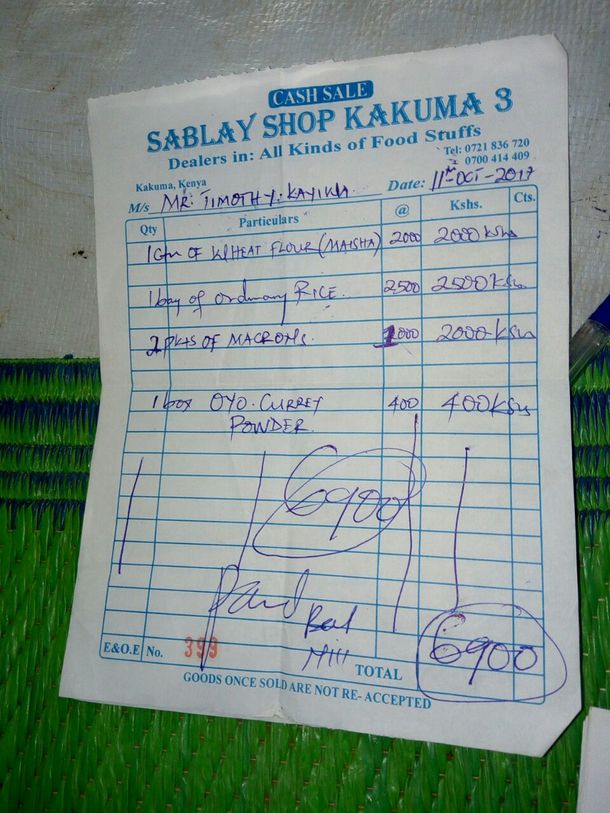 CASH SALE
SABLAY SHOP KAKUMA 3
Dealers in: All Kinds of Food Stuffs
Tel: 0721 836 720
0700 414 409
Kakuma, Kenya
M/s MR. TIMOTHY. KAYIKWA Date: 11th OCT-2017
Qty Particulars @ Kshs. Cts.
1 Ctn OF WHEAT FLOUR (MAISHA) 2000 2000 Kshs
1 bag of ordinary RICE. 2500 2500 Ksh
2 PKTS OF MACRONS. 1000 2000-Ksh
1 box OYO. CURREY 400 400 Ksh
POWDER.
6900
Paid
E&O.E No. 399
TOTAL 6900
GOODS ONCE SOLD ARE NOT RE-ACCEPTED